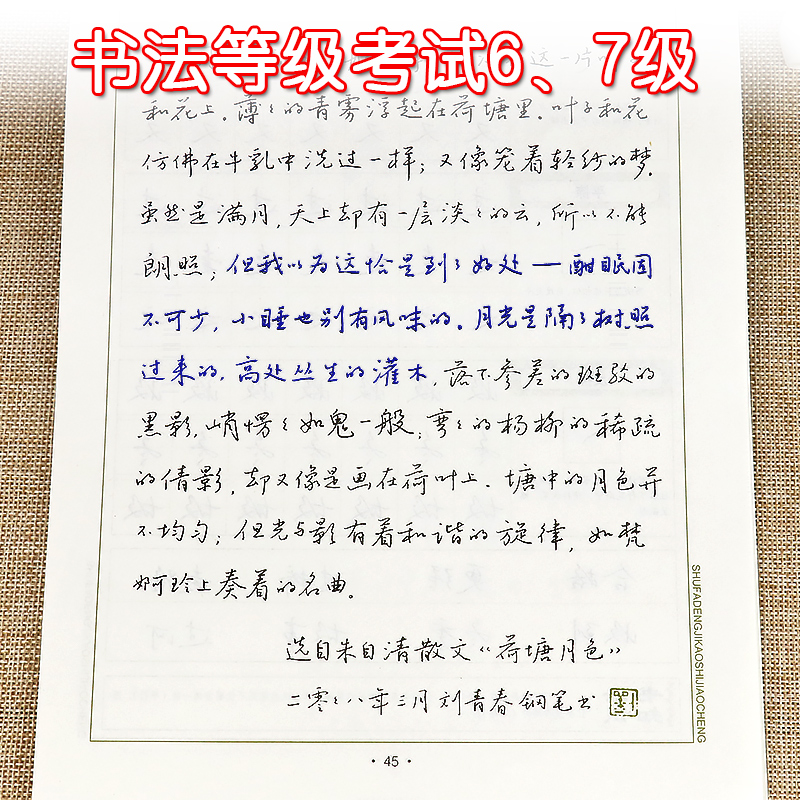 书法等级考试6、7级
这一片
和花上。薄々的青雾浮起在荷塘里。叶子和花
仿佛在牛乳中洗过一样；又像笼着轻纱的梦。
虽然是满月，天上却有一层淡々的云，所以不能
朗照；但我以为这恰是到了好处——酣眠固
不可少，小睡也别有风味的。月光是隔了树照
过来的，高处丛生的灌木，落下参差的斑驳的
黑影，峭愣々如鬼一般；弯々的杨柳的稀疏
的倩影，却又像是画在荷叶上。塘中的月色并
不均匀；但光与影有着和谐的旋律，如梵
婀玲上奏着的名曲。
选自朱自清散文《荷塘月色》
二零々八年三月刘青春钢笔书
SHUFADENGJIKAOSHIJIAOCHENG
·45·